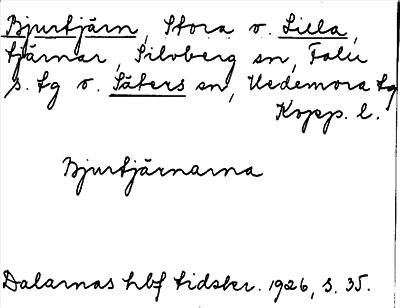 Bjurtjärn, Stora o. Lilla,
tjärnar, Silvberg sn, Falu
s. tg o. Säters sn, Hedemora tg
Kopp. l.
Bjurtjärnarna
Dalarnas hbf tidskr. 1926, s. 35.